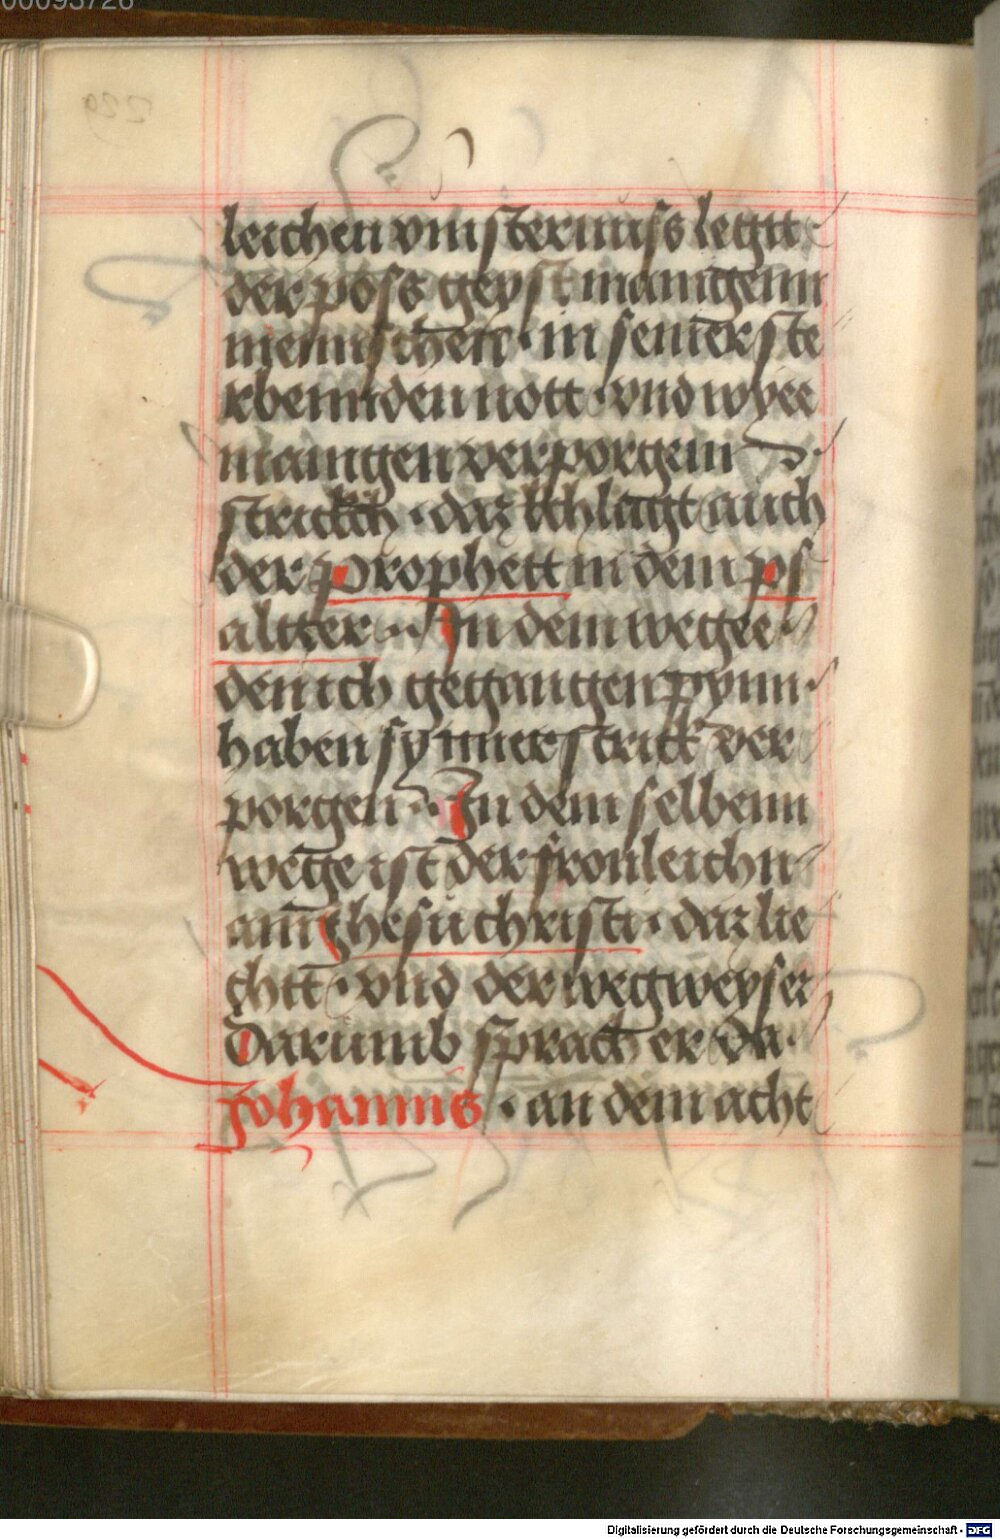 00093728
leichen vinsternuss legtt
der poss geyst manigenn
mennschen · in seiner ste
rbennden nott · vnd wyee
manigen verporgenn
strickch · daz khlagt auch
der prophett in dem ps
altter · In dem wegee
den ich gegangen pynn ·
haben sy mier strick ver
porgen · In dem selbenn
wege ist der fronleichn
am Jhesu christi · daz lie
chtt · vnd der wegweyser
darumb sprach er da ·
Johannis · an dem acht
229
Digitalisierung gefördert durch die Deutsche Forschungsgemeinschaft - DFG